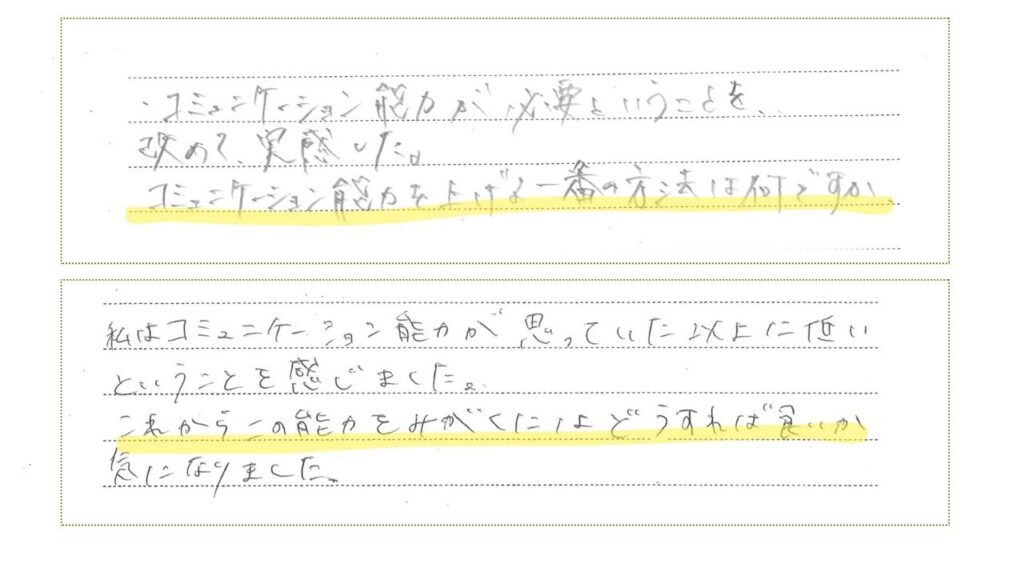 ・コミュニケーション能力が必要ということを、
改めて、実感した。
コミュニケーション能力を上げる一番の方法は何ですか
私はコミュニケーション能力が思っていた以上に低い
ということを感じました。
これからこの能力をみがくにはどうすれば良いか
気になりました。